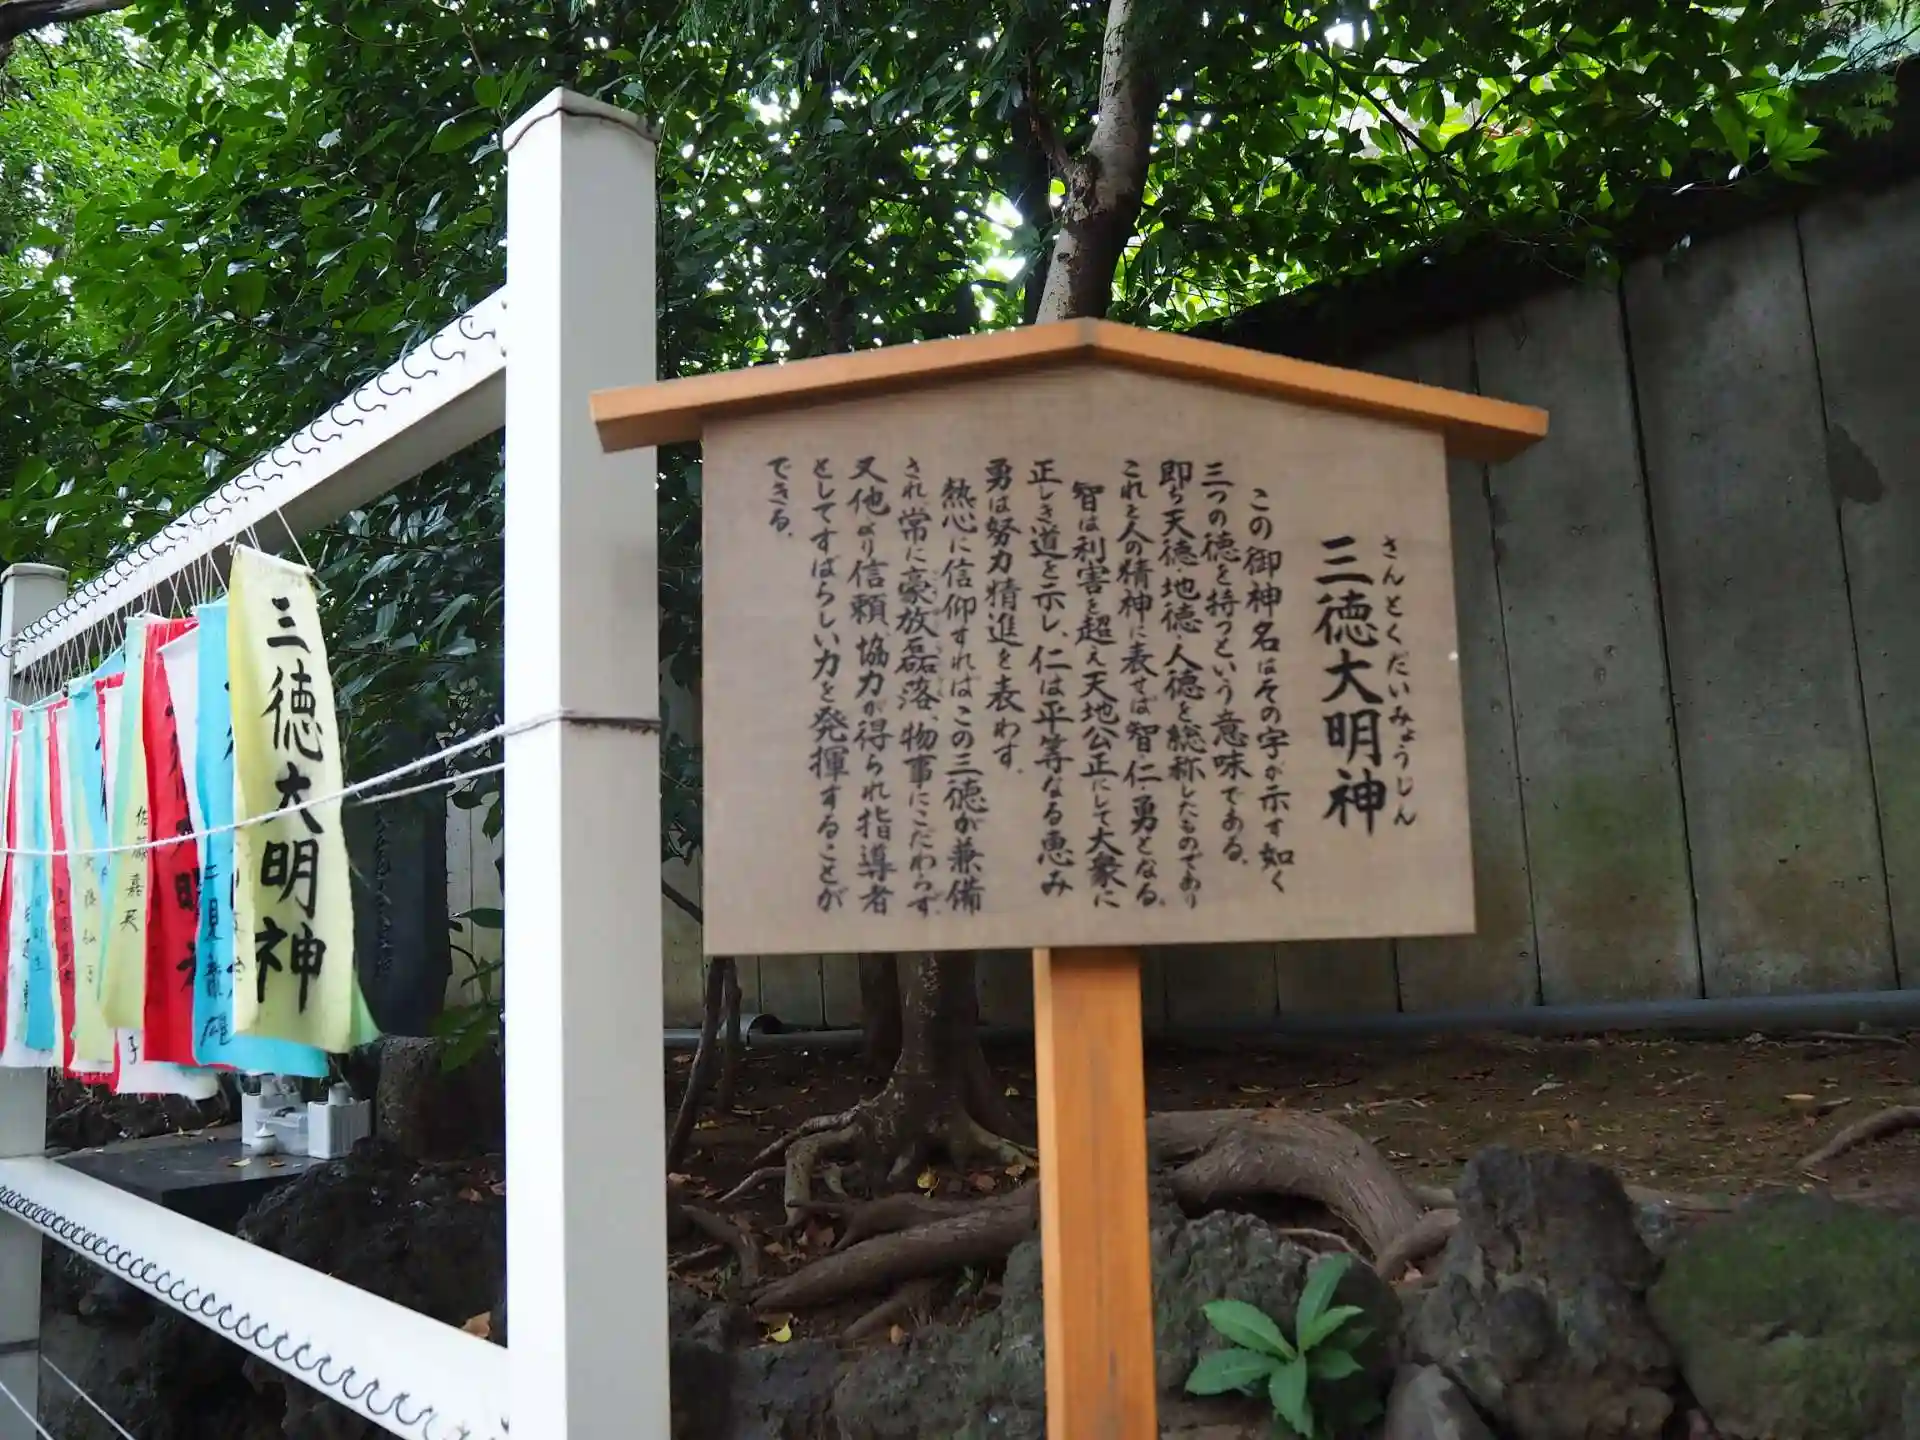 三徳大明神
さんとくだいみょうじん
この御神名はその字が示す如く
三つの徳を持つという意味である。
即ち天徳・地徳・人徳を総称したものであり
これを人の精神に表せば智・仁・勇となる。
智は利害を超え天地公正にして大衆に
正しき道を示し、仁は平等なる恵み
勇は努力精進を表わす。
熱心に信仰すればこの三徳が兼備
され常に豪放磊落、物事にこだわらず、
又他より信頼、協力が得られ指導者
としてすばらしい力を発揮することが
できる。
三徳大明神
二見
雄
佐藤嘉
子